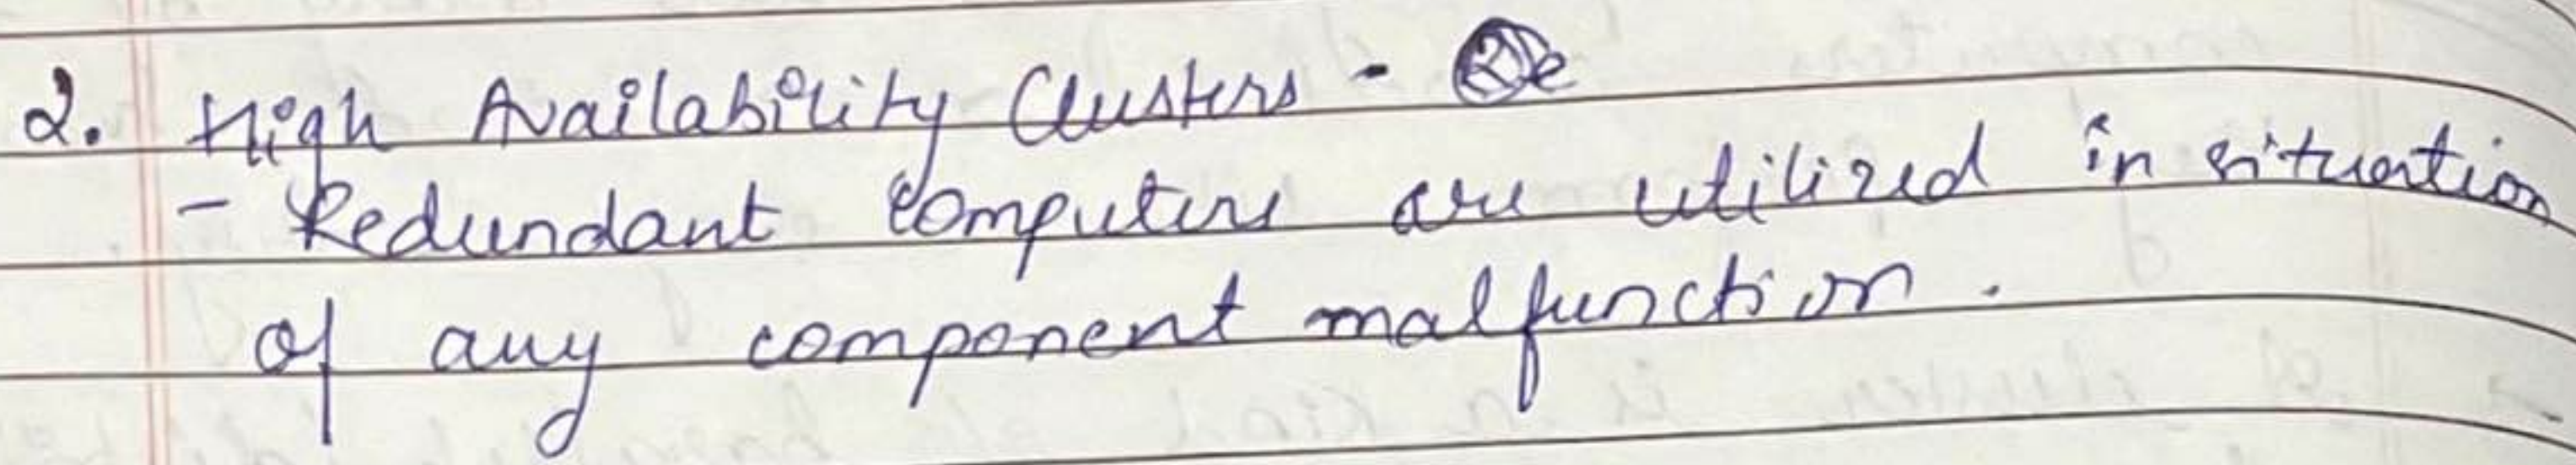 2. High Availability Clusters -
- Redundant computers are utilized in situation
of any component malfunction.